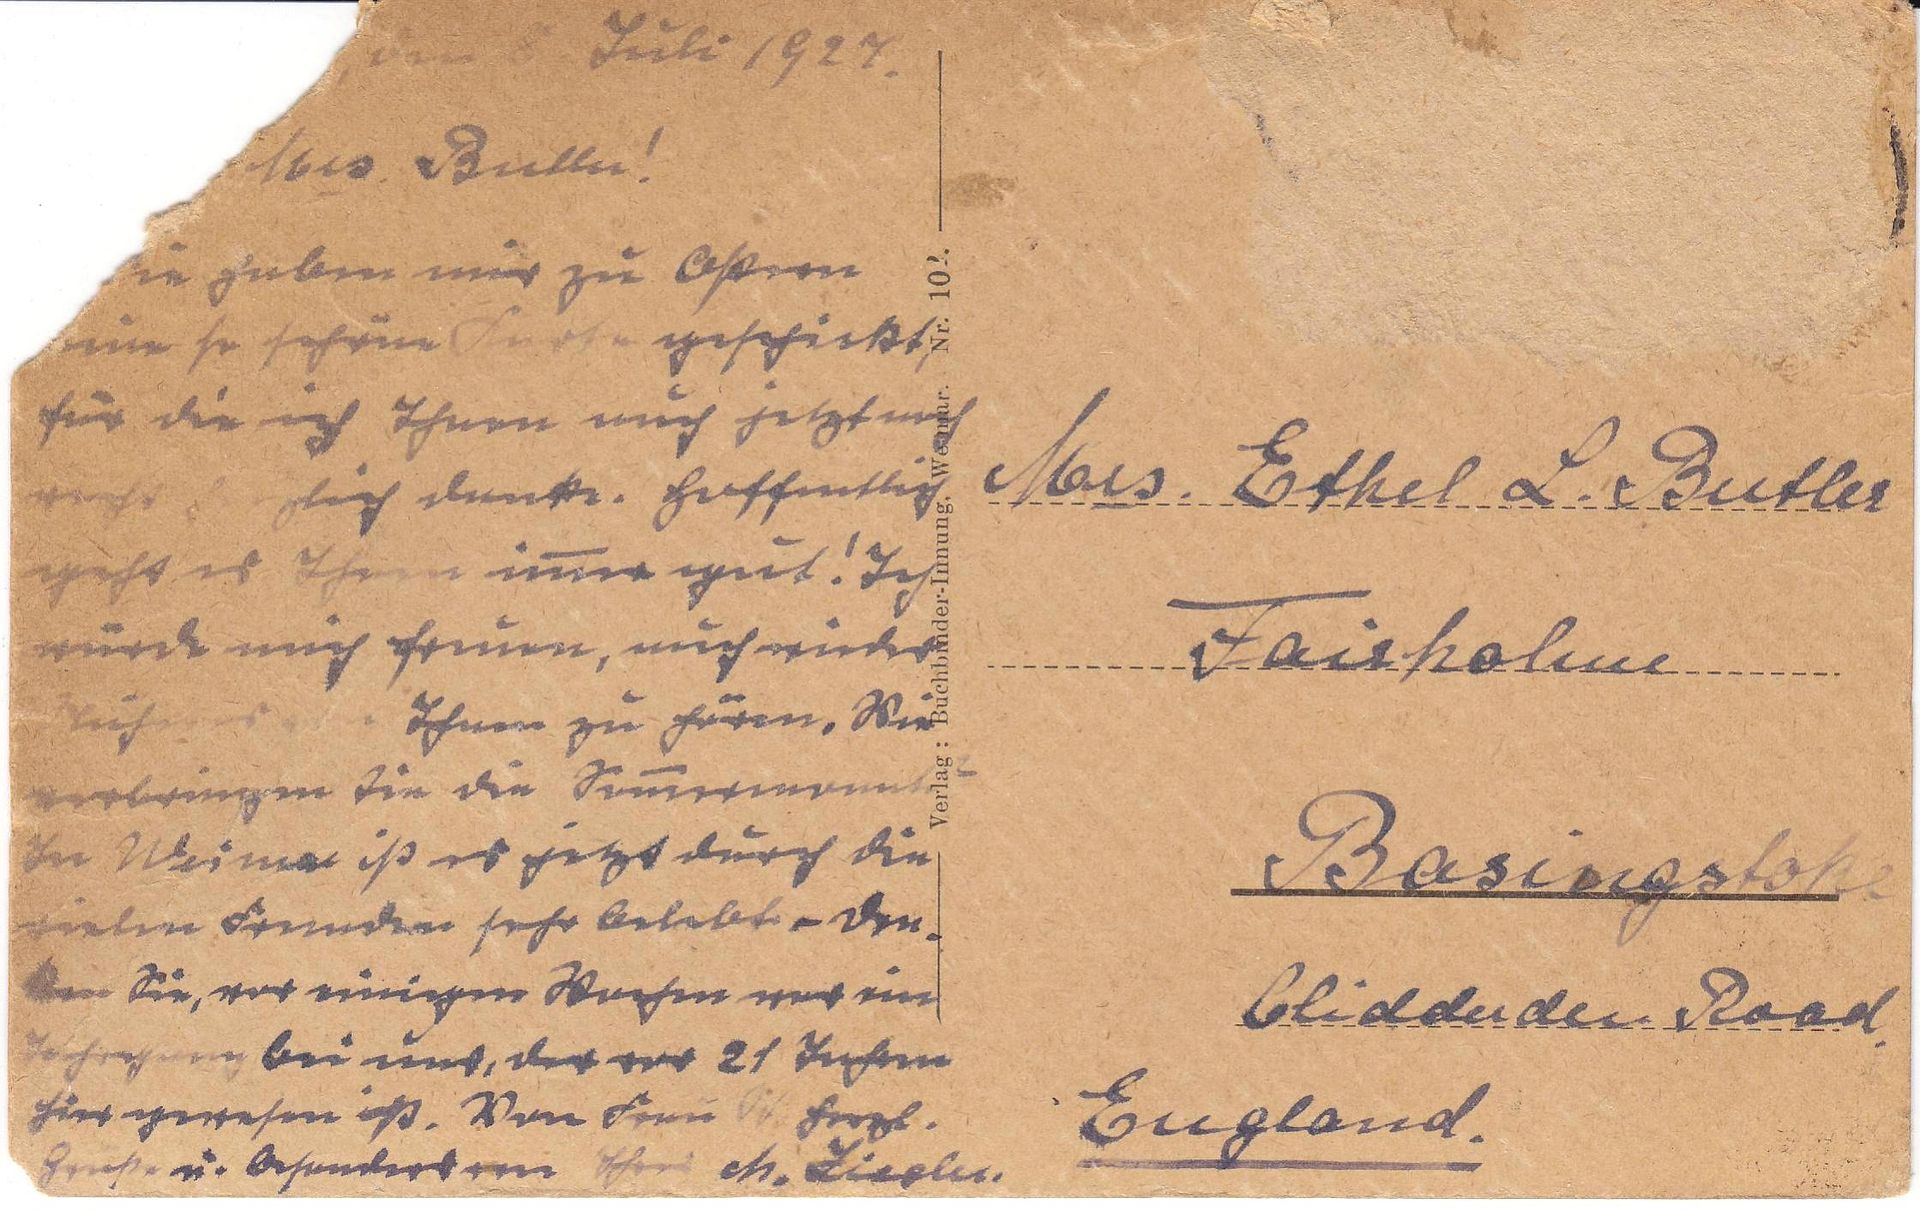 , den 8. Juli 1927.
Mrs. Butler!
Sie haben mir zu Ostern
eine so schöne Karte geschickt,
für die ich Ihnen auch jetzt noch
recht herzlich danke. Hoffentlich
geht es Ihnen im̅er gut! Ich
würde mich freuen, auch wieder
Ihnen zu hören. Wie
verbringen Sie die Som̅ermonate
In Weimar ist es jetzt durch die
vielen Fremden sehr belebt - Den-
ken Sie, vor einigen Wochen war ein
bei uns, der vor 21 Jahren
hier gewesen ist. Von Frau herzl.
Grüße u. besonders von Ihrer M. Ziegler.
Verlag: Buchbinder-Innung, Weimar. Nr. 102.
Mrs. Ethel L. Butler
Fairholme
Basingstoke
Cliddesden Road.
England.